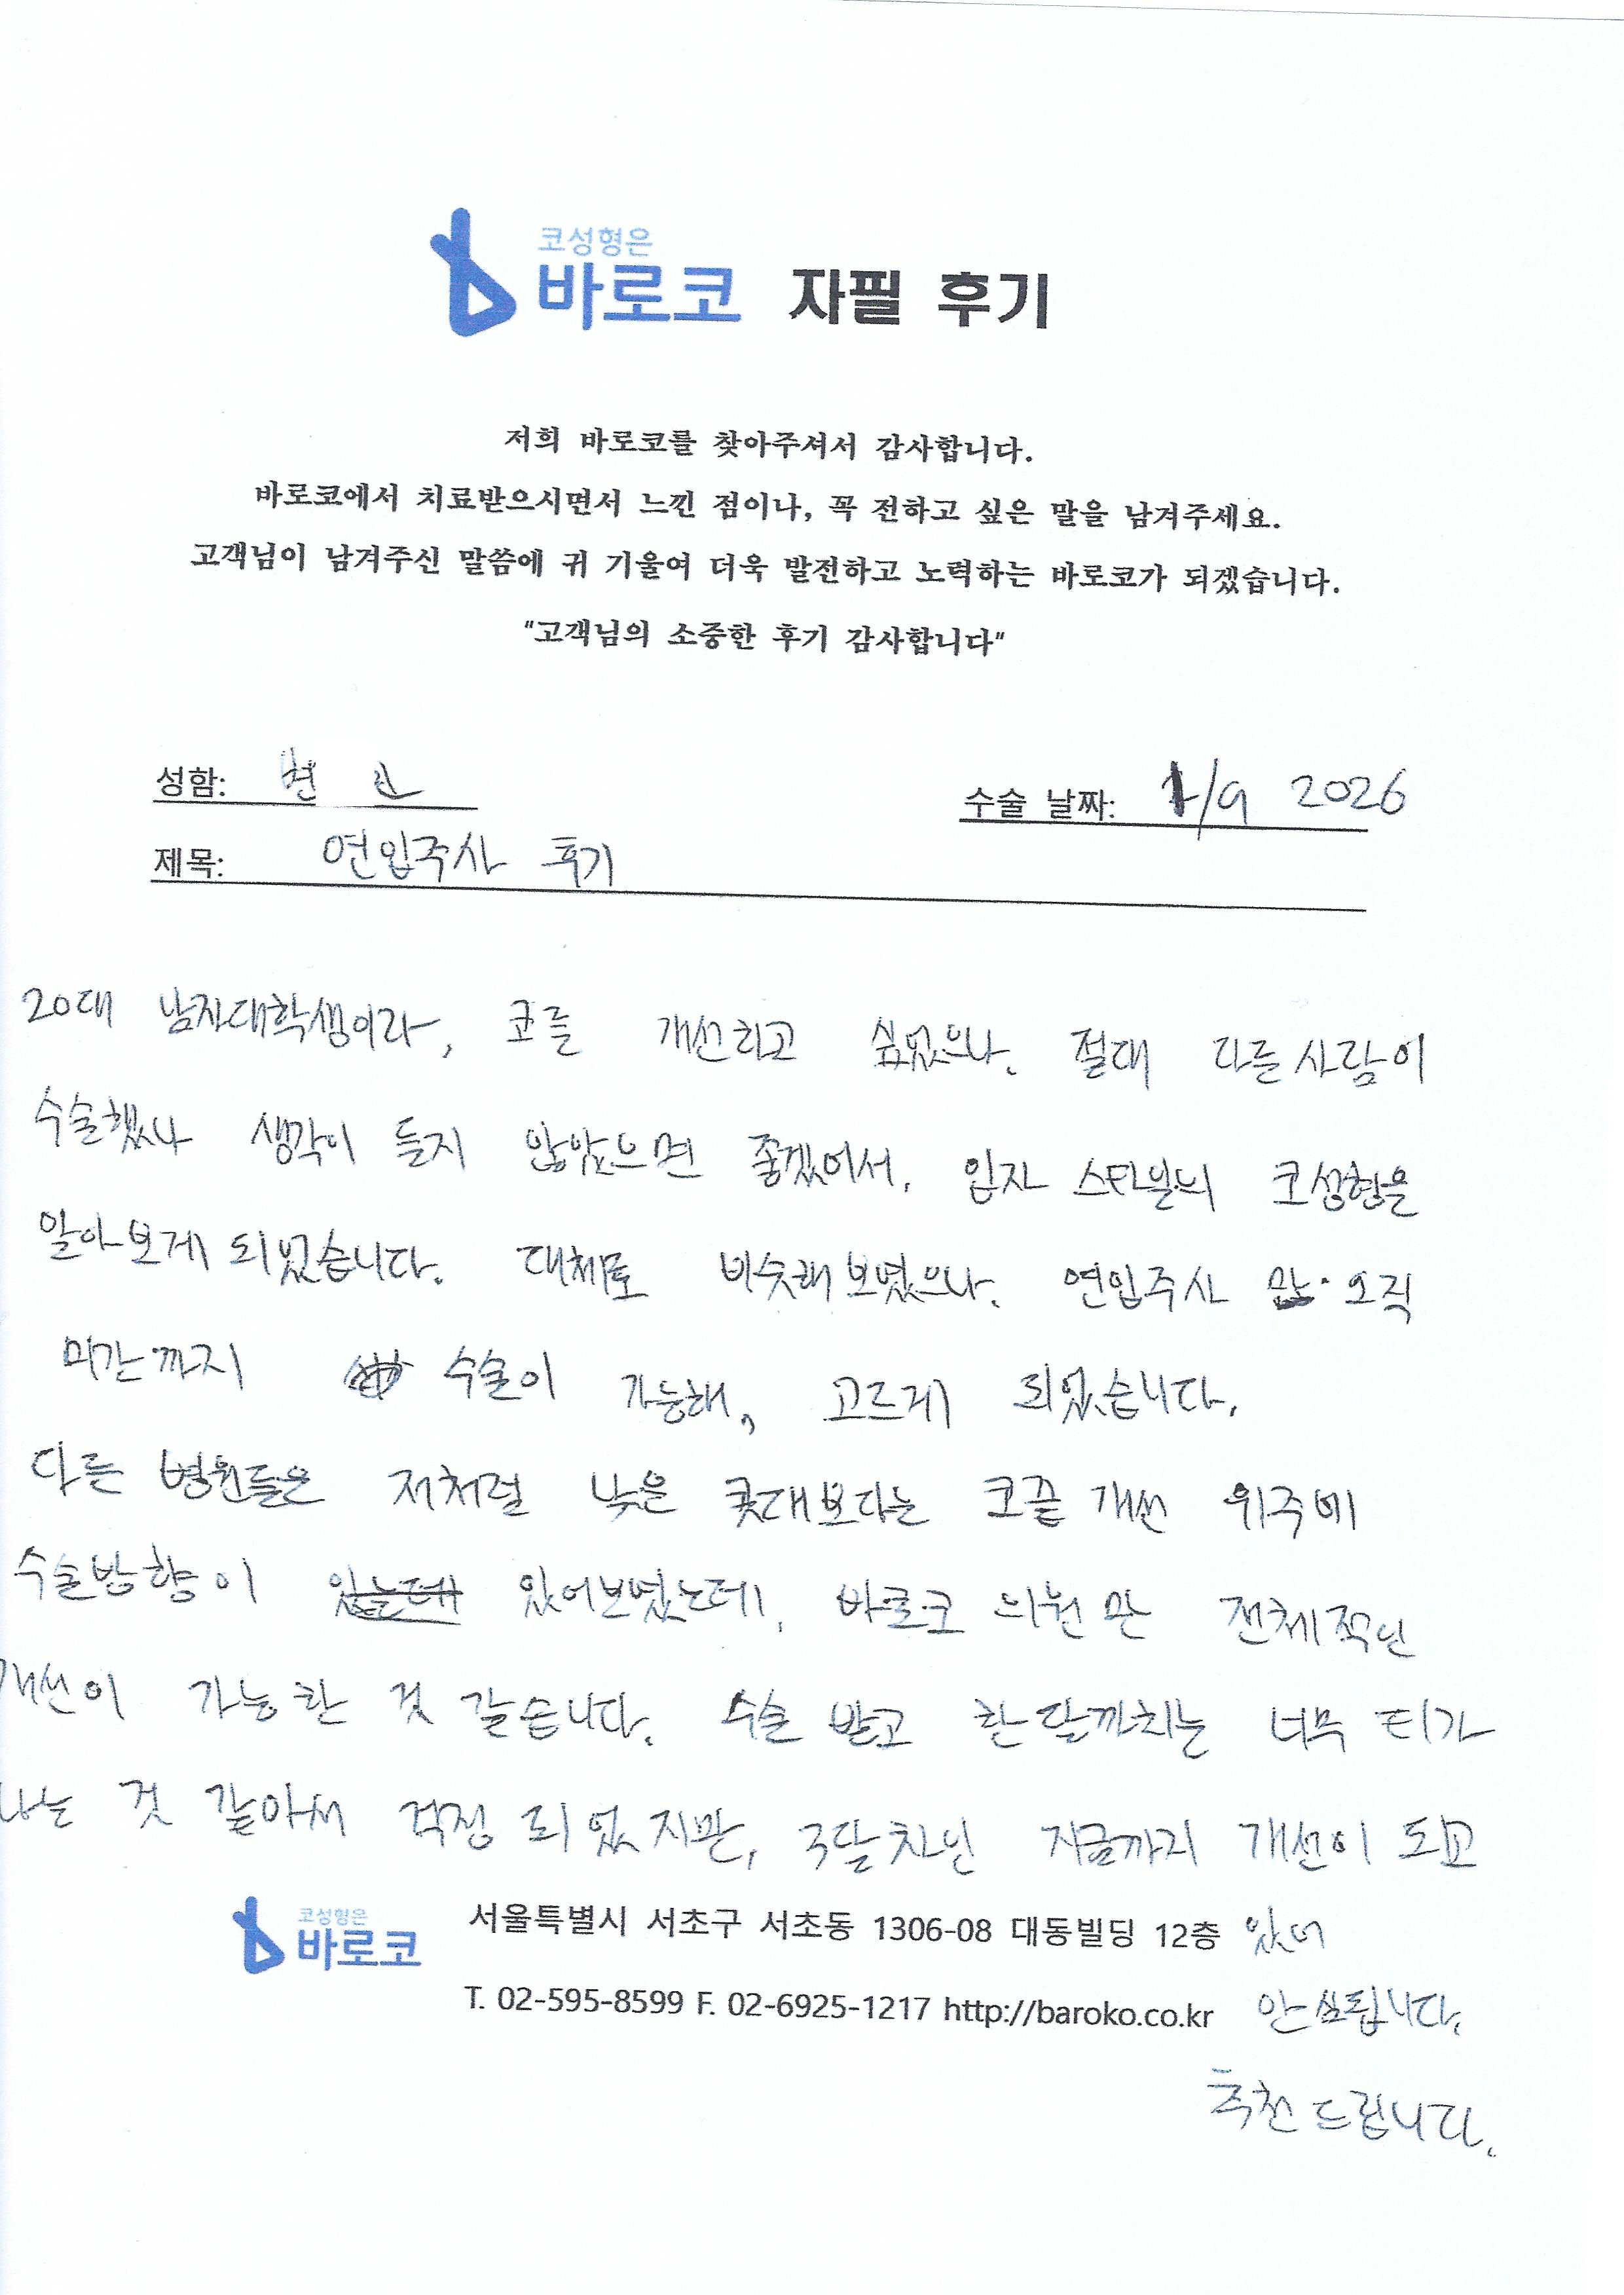 코성형은
바로코 자필 후기
저희 바로코를 찾아주셔서 감사합니다.
바로코에서 치료받으시면서 느낀 점이나, 꼭 전하고 싶은 말을 남겨주세요.
고객님이 남겨주신 말씀에 귀 기울여 더욱 발전하고 노력하는 바로코가 되겠습니다.
"고객님의 소중한 후기 감사합니다"
성함: 변 수술 날짜: 1/9 2026
제목: 연입주사 후기
20대 남자대학생이라, 코를 개선하고 싶었으나, 절대 다른사람이
수술했나 생각이 들지 않았으면 좋겠어서, 입자 스타일의 코성형을
알아보게 되었습니다. 대체로 비슷해보였으나, 연입주사 만 오직
미간까지 수술이 가능해, 고르게 되었습니다.
다른 병원들은 저처럼 낮은 콧대보다는 코끝 개선 위주에
수술방향이 있는데 있어보였는데, 바로코 의원만 전체적인
개선이 가능한 것 같습니다. 수술 받고 한달까지는 너무 티가
나는 것 같아서 걱정 되었지만, 3달차인 지금까지 개선이 되고
있어
안심됩니다.
추천드립니다.
코성형은
바로코
서울특별시 서초구 서초동 1306-08 대동빌딩 12층
T. 02-595-8599 F. 02-6925-1217 http://baroko.co.kr